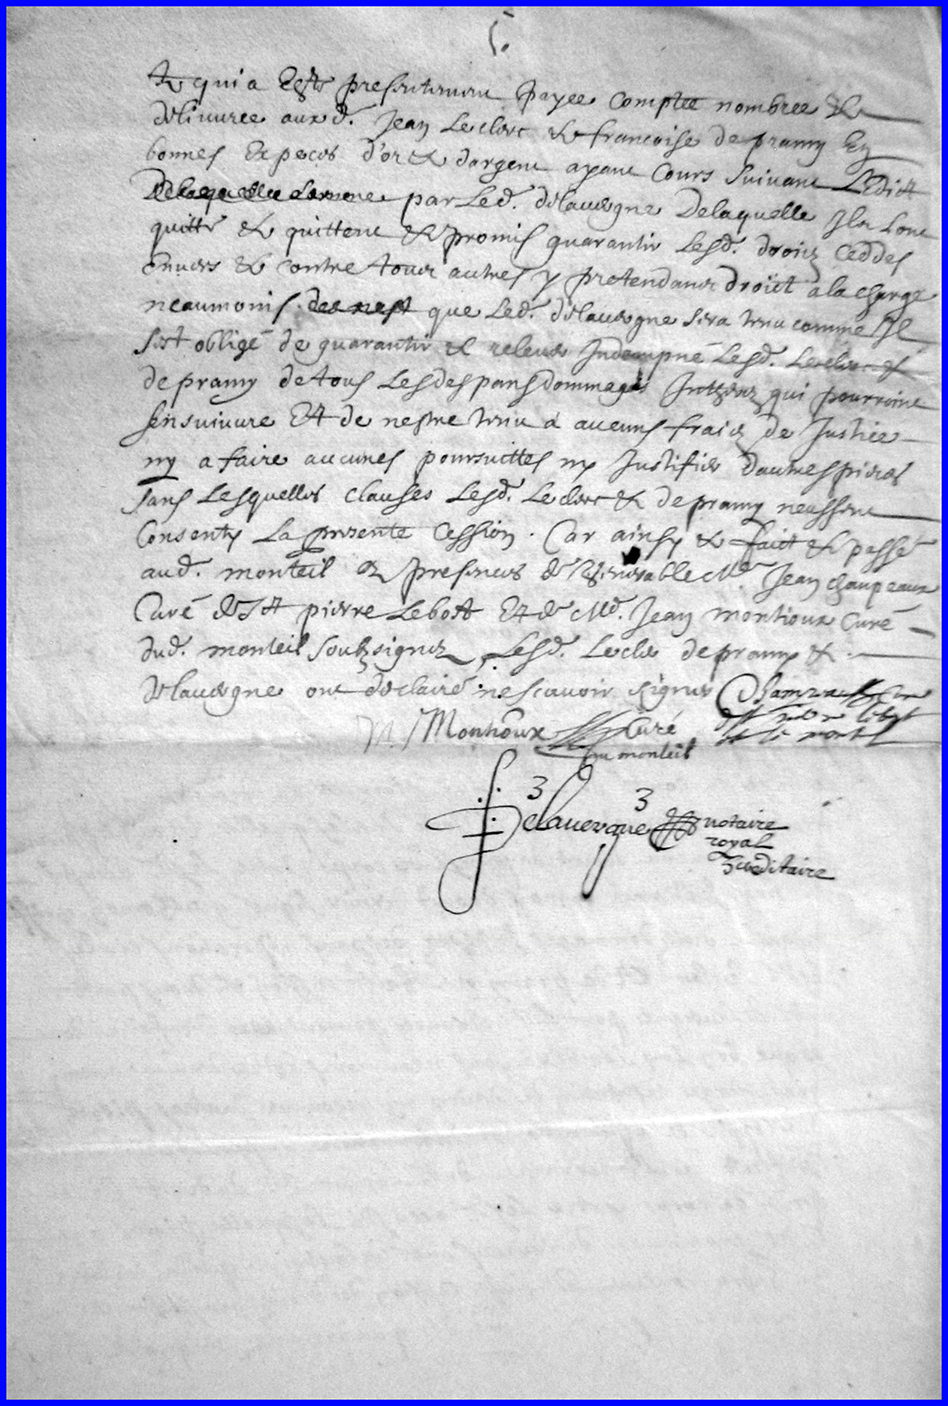 5.
& qui a Esté presentement payee comptee nombree &
delivree ausd. Jean Leclerc & francoise de pramy En
bonnes Especes d'or & dargent ayant Cours suivant Ledict
par Led. delauvergne Delaquelle Ilz Lont
quitté & quittent & promis guarantir Lesd. droicz ceddes
Envers & contre tous autres y pretendans droict a la charge
neaumoins que Led. delauvergne sera tenu comme Il
sest obligé de guarantir & relever Indempne Lesd. Leclerc &
de pramy de tous Les despans dommages Intherez qui pourroint
sensuivre Et de nestre tenu a aucuns fraiz de Justice
ny a faire aucunes poursuittes ny Justifier dautres pieces
sans Lesquelles clauses Lesd. Leclerc & de pramy neussent
Consenty La presente Cession. Car ainsy & faict & passé
aud. monteil Ez presences de Venerable Mre Jean
Curé de St pierre Lebost Et de Me. Jean montioux Curé
dud. monteil soubzsignez, Lesd. Leclerc de pramy &
delauvergne ont declairé ne scavoir signer
Montioux Curé
du monteil
Delauvergne notaire
royal
hereditaire